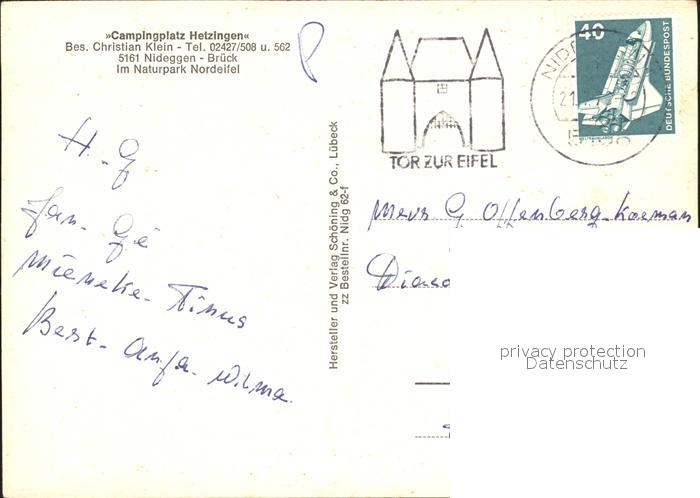 »Campingplatz Hetzingen«
Bes. Christian Klein - Tel. 02427/508 u. 562
5161 Nideggen - Brück
Im Naturpark Nordeifel
H. - G
Jan - Gé
Mieneke - Tinus
Bert - Anja - Wilma.
Hersteller und Verlag Schöning & Co., Lübeck
zz Bestellnr. Nidg 62-f
TOR ZUR EIFEL
40
DEUTSCHE BUNDESPOST
Mevr G. Offenberg-Koeman
privacy protection
Datenschutz